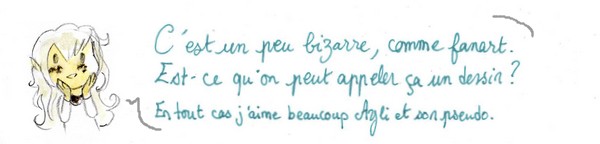 C'est un peu bizarre, comme fanart.
Est-ce qu'on peut appeler ça un dessin ?
En tout cas j'aime beaucoup Agli et son pseudo.